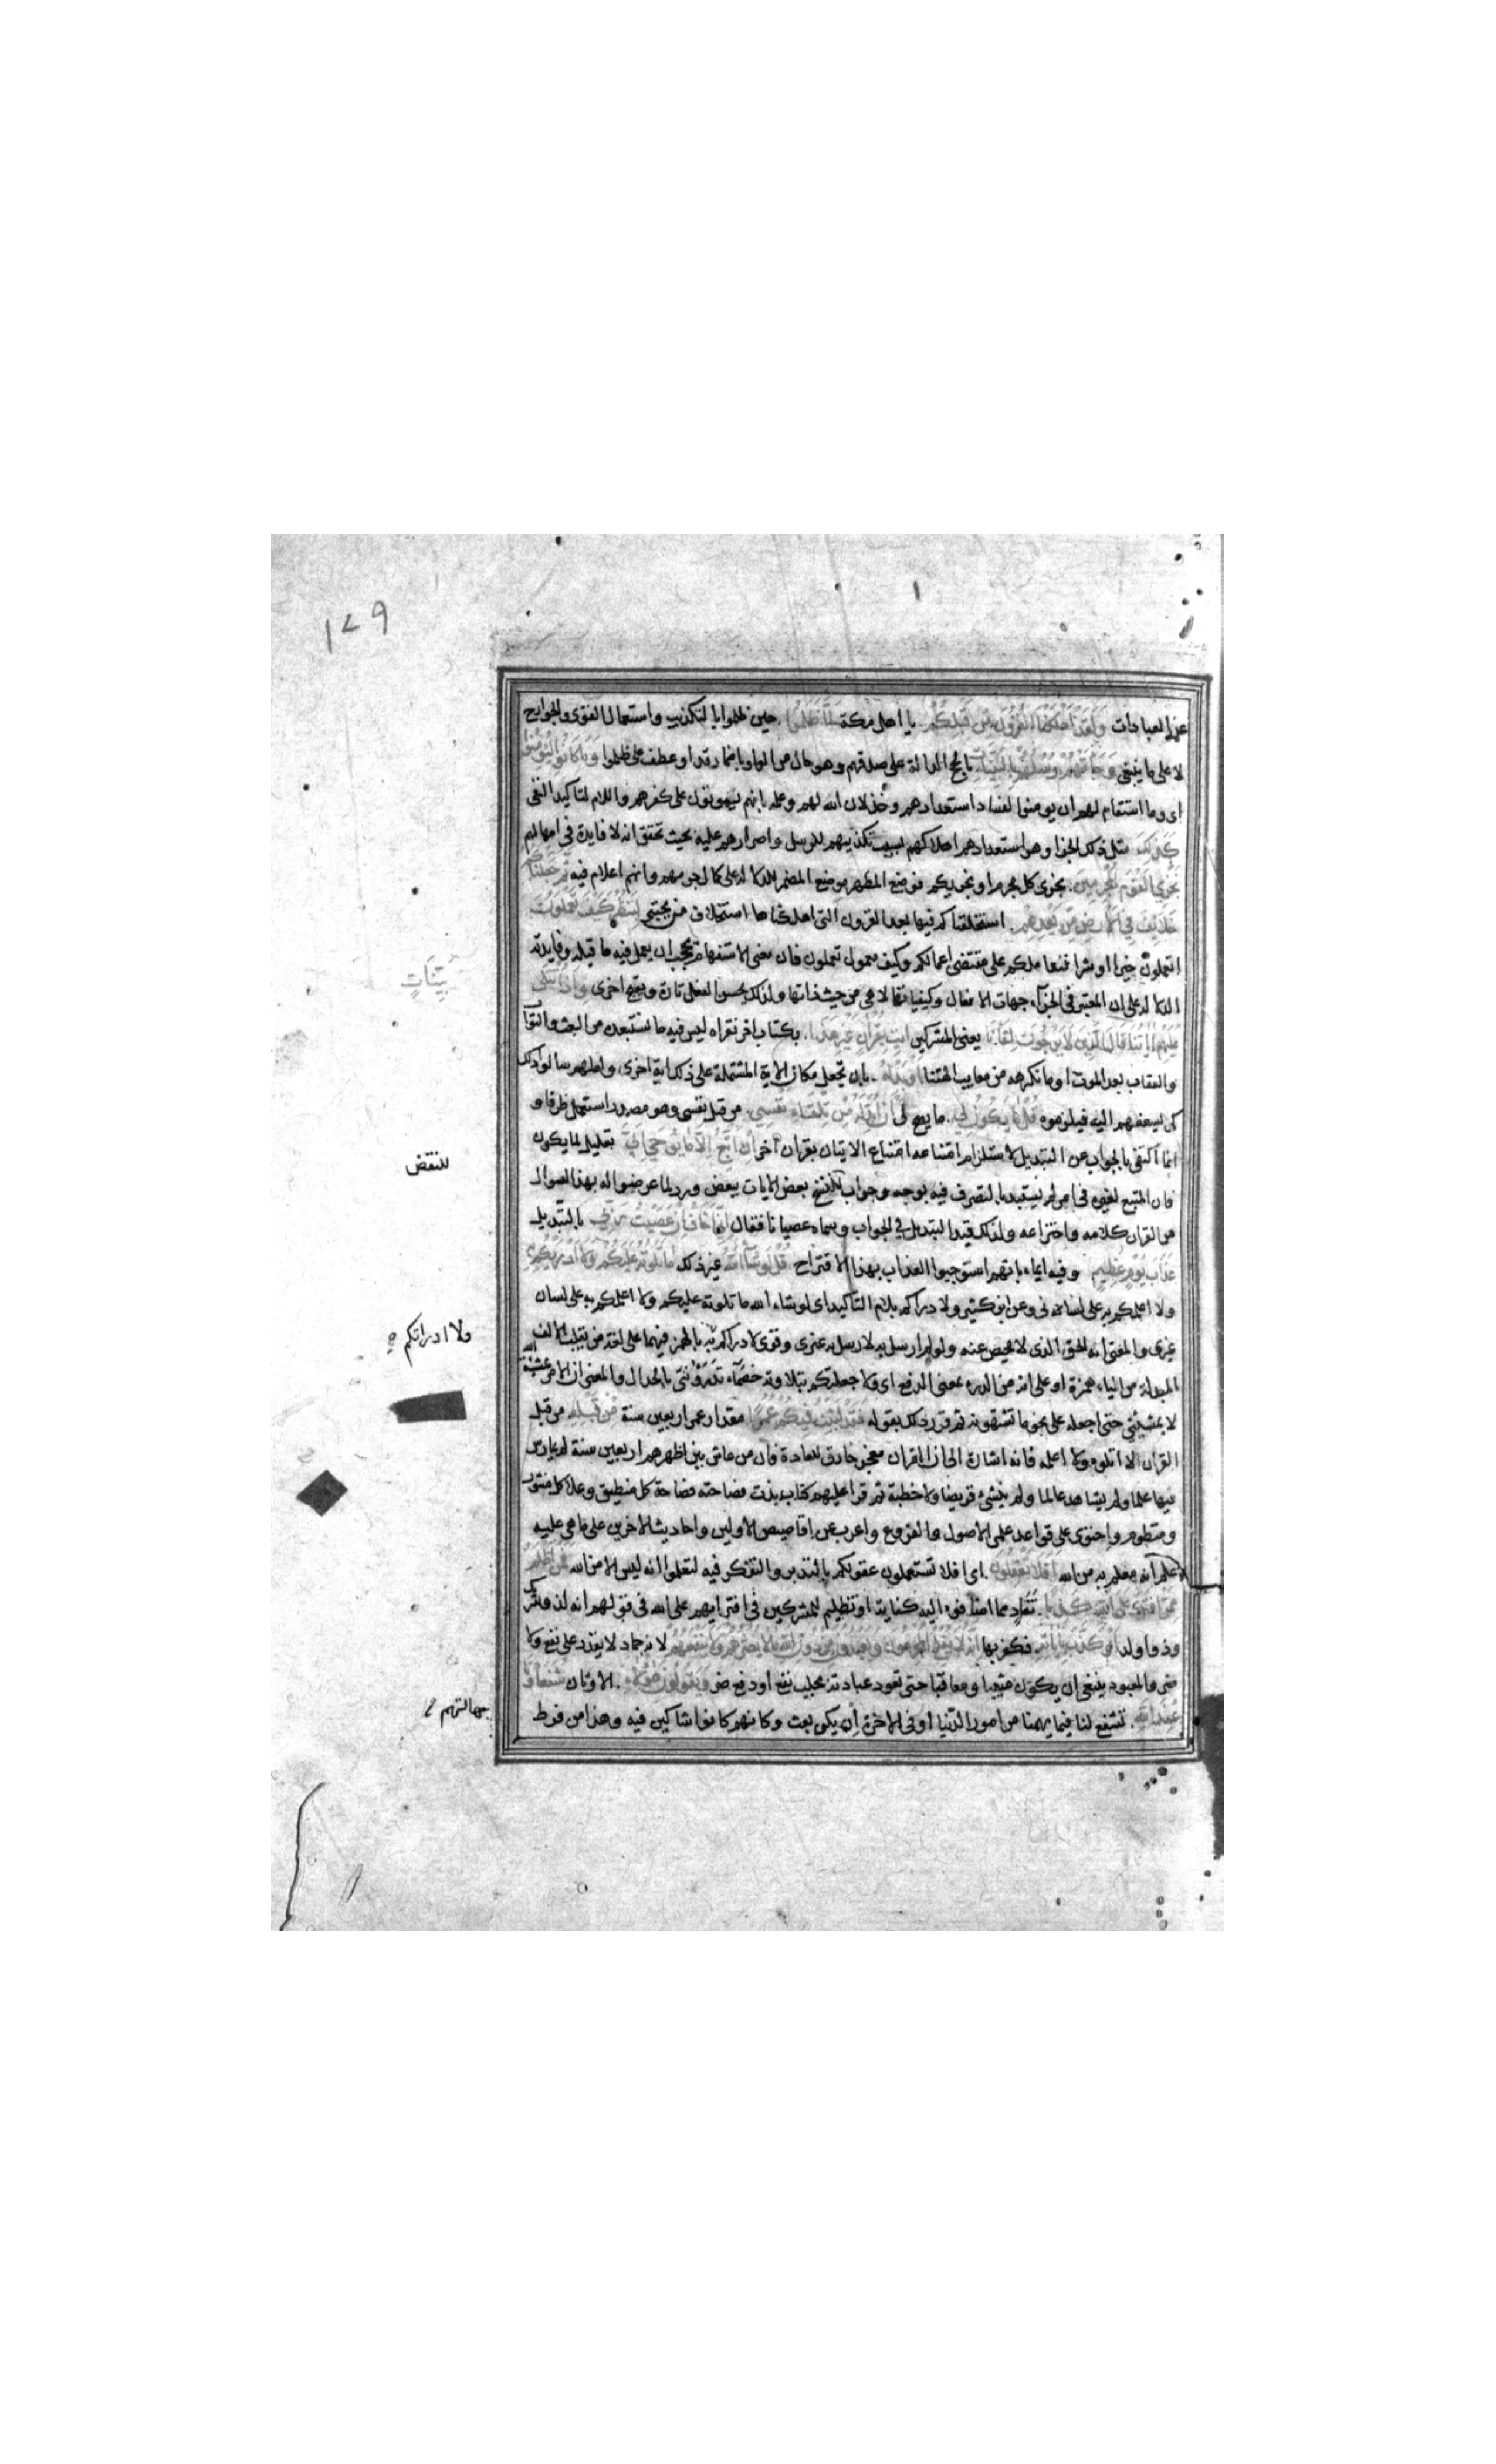 ١٧٩
عن العبادات وَلَقَدْ اَهْلَكْنَا الْقُرُونَ مِنْ قَبْلِكُمْ يا اهل مكة لَمَّا ظَلَمُوا حين ظلموا بالتكذيب واستعمال القوى والجوارح
لا على ما ينبغى وَجَاءَتْهُمْ رُسُلُهُمْ بِالْبَيِّنَاتِ بالحجج الدالة على صدقهم وهو حال من الواو باضمار قد او عطف على ظلموا وَمَا كَانُوا لِيُؤْمِنُوا
اى وما استقام لهم ان يومنوا لفساد استعدادهم وخذلان الله لهم وعلمه بانهم يموتون على كفرهم واللام لتاكيد النفى
كَذٰلِكَ مثل ذلك الجزا وهو استعدادهم اهلاكهم بسبب تكذيبهم للرسل واصرارهم عليه بحيث تحقق انه لا فايدة فى امهالهم
نَجْزِي الْقَوْمَ الْمُجْرِمِينَ نجزى كل مجرم او نجزيكم فوضع المظهر موضع المضمر للدلالة على كمال جرمهم وانهم اعلام فيه ثُمَّ جَعَلْنَاكُمْ
خَلَائِفَ فِي الْاَرْضِ مِنْ بَعْدِهِمْ استخلفناكم فيها بعد القرون التى اهلكناها استخلاف من يختبر لِنَنْظُرَ كَيْفَ تَعْمَلُونَ
اتعملون خيرا او شرا فنعاملكم على مقتضى اعمالكم وكيف معمول تعملون فان معنى الاستفهام يحجب ان يعمل فيه ما قبله وفايدته
الدلالة على ان المعتبر فى الجزآء جهات الافعال وكيفياتها لا هى من حيث ذاتها ولذلك يحسن الفعل تارة ويقبح اخرى وَاِذَا تُتْلٰى
عَلَيْهِمْ اٰيَاتُنَا قَالَ الَّذِينَ لَا يَرْجُونَ لِقَاءَنَا يعنى المشركين ائْتِ بِقُرْاٰنٍ غَيْرِ هٰذَا بكتاب اخر نقراه ليس فيه ما نستبعده من البعث والثوآب
والعقاب بعد الموت او ما نكرهه من معايب الهتنا اَوْ بَدِّلْهُ بان تجعل مكان الاية المشتملة على ذلك اية اخرى ولعلهم سالوا ذلك
كى يسعفهم اليه فيلزموه قُلْ مَا يَكُونُ لِي ما يصح لى اَنْ اُبَدِّلَهُ مِنْ تِلْقَاءِ نَفْسِي من قبل نفسى وهو مصدر استعمل ظرفا و
انما اكتفى بالجواب عن التبديل لاستلزام امتناعه امتناع الاتيان بقران اخر اِنْ اَتَّبِعُ اِلَّا مَا يُوحٰى اِلَيَّ تعليل لما يكون
فان المتبع لغيره فى امر لم يستبد بالتصرف فيه بوجه وجواب بنسخ بعض الايات ببعض ورد لما عرضوا له بهذا السوال
من القران كلامه واختراعه ولذلك قيد التبديل فى الجواب وسماه عصيانا فقال اِنِّي اَخَافُ اِنْ عَصَيْتُ رَبِّي بالتبديل
عَذَابَ يَوْمٍ عَظِيمٍ وفيه ايماء بانهم استوجبوا العذاب بهذا الاقتراح قُلْ لَوْ شَاءَ اللّٰهُ غير ذلك مَا تَلَوْتُهُ عَلَيْكُمْ وَلَا اَدْرٰيكُمْ بِهِ
ولا اعلمكم به على لسانى وعن ابن كثير ولادراكم بلام التاكيد اى لو شاء الله ما تلوته عليكم ولا اعلمكم به على لسان
غيرى والمعنى انه الحق الذى لا محيص عنه ولو لم ارسل به لارسل به غيرى وقرى لا ادراكم به بالهمز فيهما على لغة من يقلب الالف
المبدلة من الياء همزة او على انه من الدرء بمعنى الدفع اى ولا جعلتكم بتلاوته خصماء تدرؤننى بالجدال والمعنى ان الامر بمشية الله
لا بمشيئتى حتى اجعله على نحو ما تشتهونه ثم قرر ذلك بقوله فَقَدْ لَبِثْتُ فِيكُمْ عُمُرًا مقدار عمر اربعين سنة مِنْ قَبْلِهِ من قبل
القران لا اتلوه ولا اعلمه فانه اشارة الى ان القران معجز خارق للعادة فان من عاش بين اظهرهم اربعين سنة لم يمارس
فيها علما ولم يشاهد عالما ولم ينشئ قريضا ولا خطبة ثم قرا عليهم كتاب بذت فصاحته فصاحة كل منطيق وعلا كل منثور
ومنظوم واحتوى على قواعد علمى الاصول والفروع واعرب عن اقاصيص الاولين واحاديث الاخرين على ما هى عليه
علم انه معلم به من الله اَفَلَا تَعْقِلُونَ اى افلا تستعملون عقولكم بالتدبر والتفكر فيه لتعلموا انه ليس الا من الله فَمَنْ اَظْلَمُ
مِمَّنِ افْتَرٰى عَلَى اللّٰهِ كَذِبًا تفاد مما اضافوه اليه كناية او تظليم للمشركين فى افترايهم على الله فى قولهم انه لذو شريك
وذو ولد اَوْ كَذَّبَ بِاٰيَاتِهِ فكفر بها اِنَّهُ لَا يُفْلِحُ الْمُجْرِمُونَ وَيَعْبُدُونَ مِنْ دُونِ اللّٰهِ مَا لَا يَضُرُّهُمْ وَلَا يَنْفَعُهُمْ لانه جماد لا يقدر على نفع ولا
ضر والمعبود ينبغى ان يكون مثيبا ومعاقبا حتى تعود عبادته بجلب نفع او دفع ضر وَيَقُولُونَ هٰؤُلَاءِ الاوثان شُفَعَاؤُنَا
عِنْدَ اللّٰهِ تشفع لنا فيما يهمنا من امور الدنيا او فى الاخرة ان يكن بعث وكانهم كانوا شاكين فيه وهذا من فرط
بَيِّنَاتٍ
للنقض
ولا ادراتكم به
جهالتهم